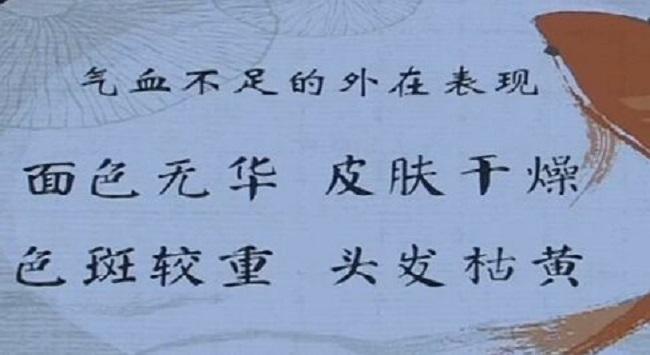 气血不足的外在表现
面色无华 皮肤干燥
色斑较重 头发枯黄